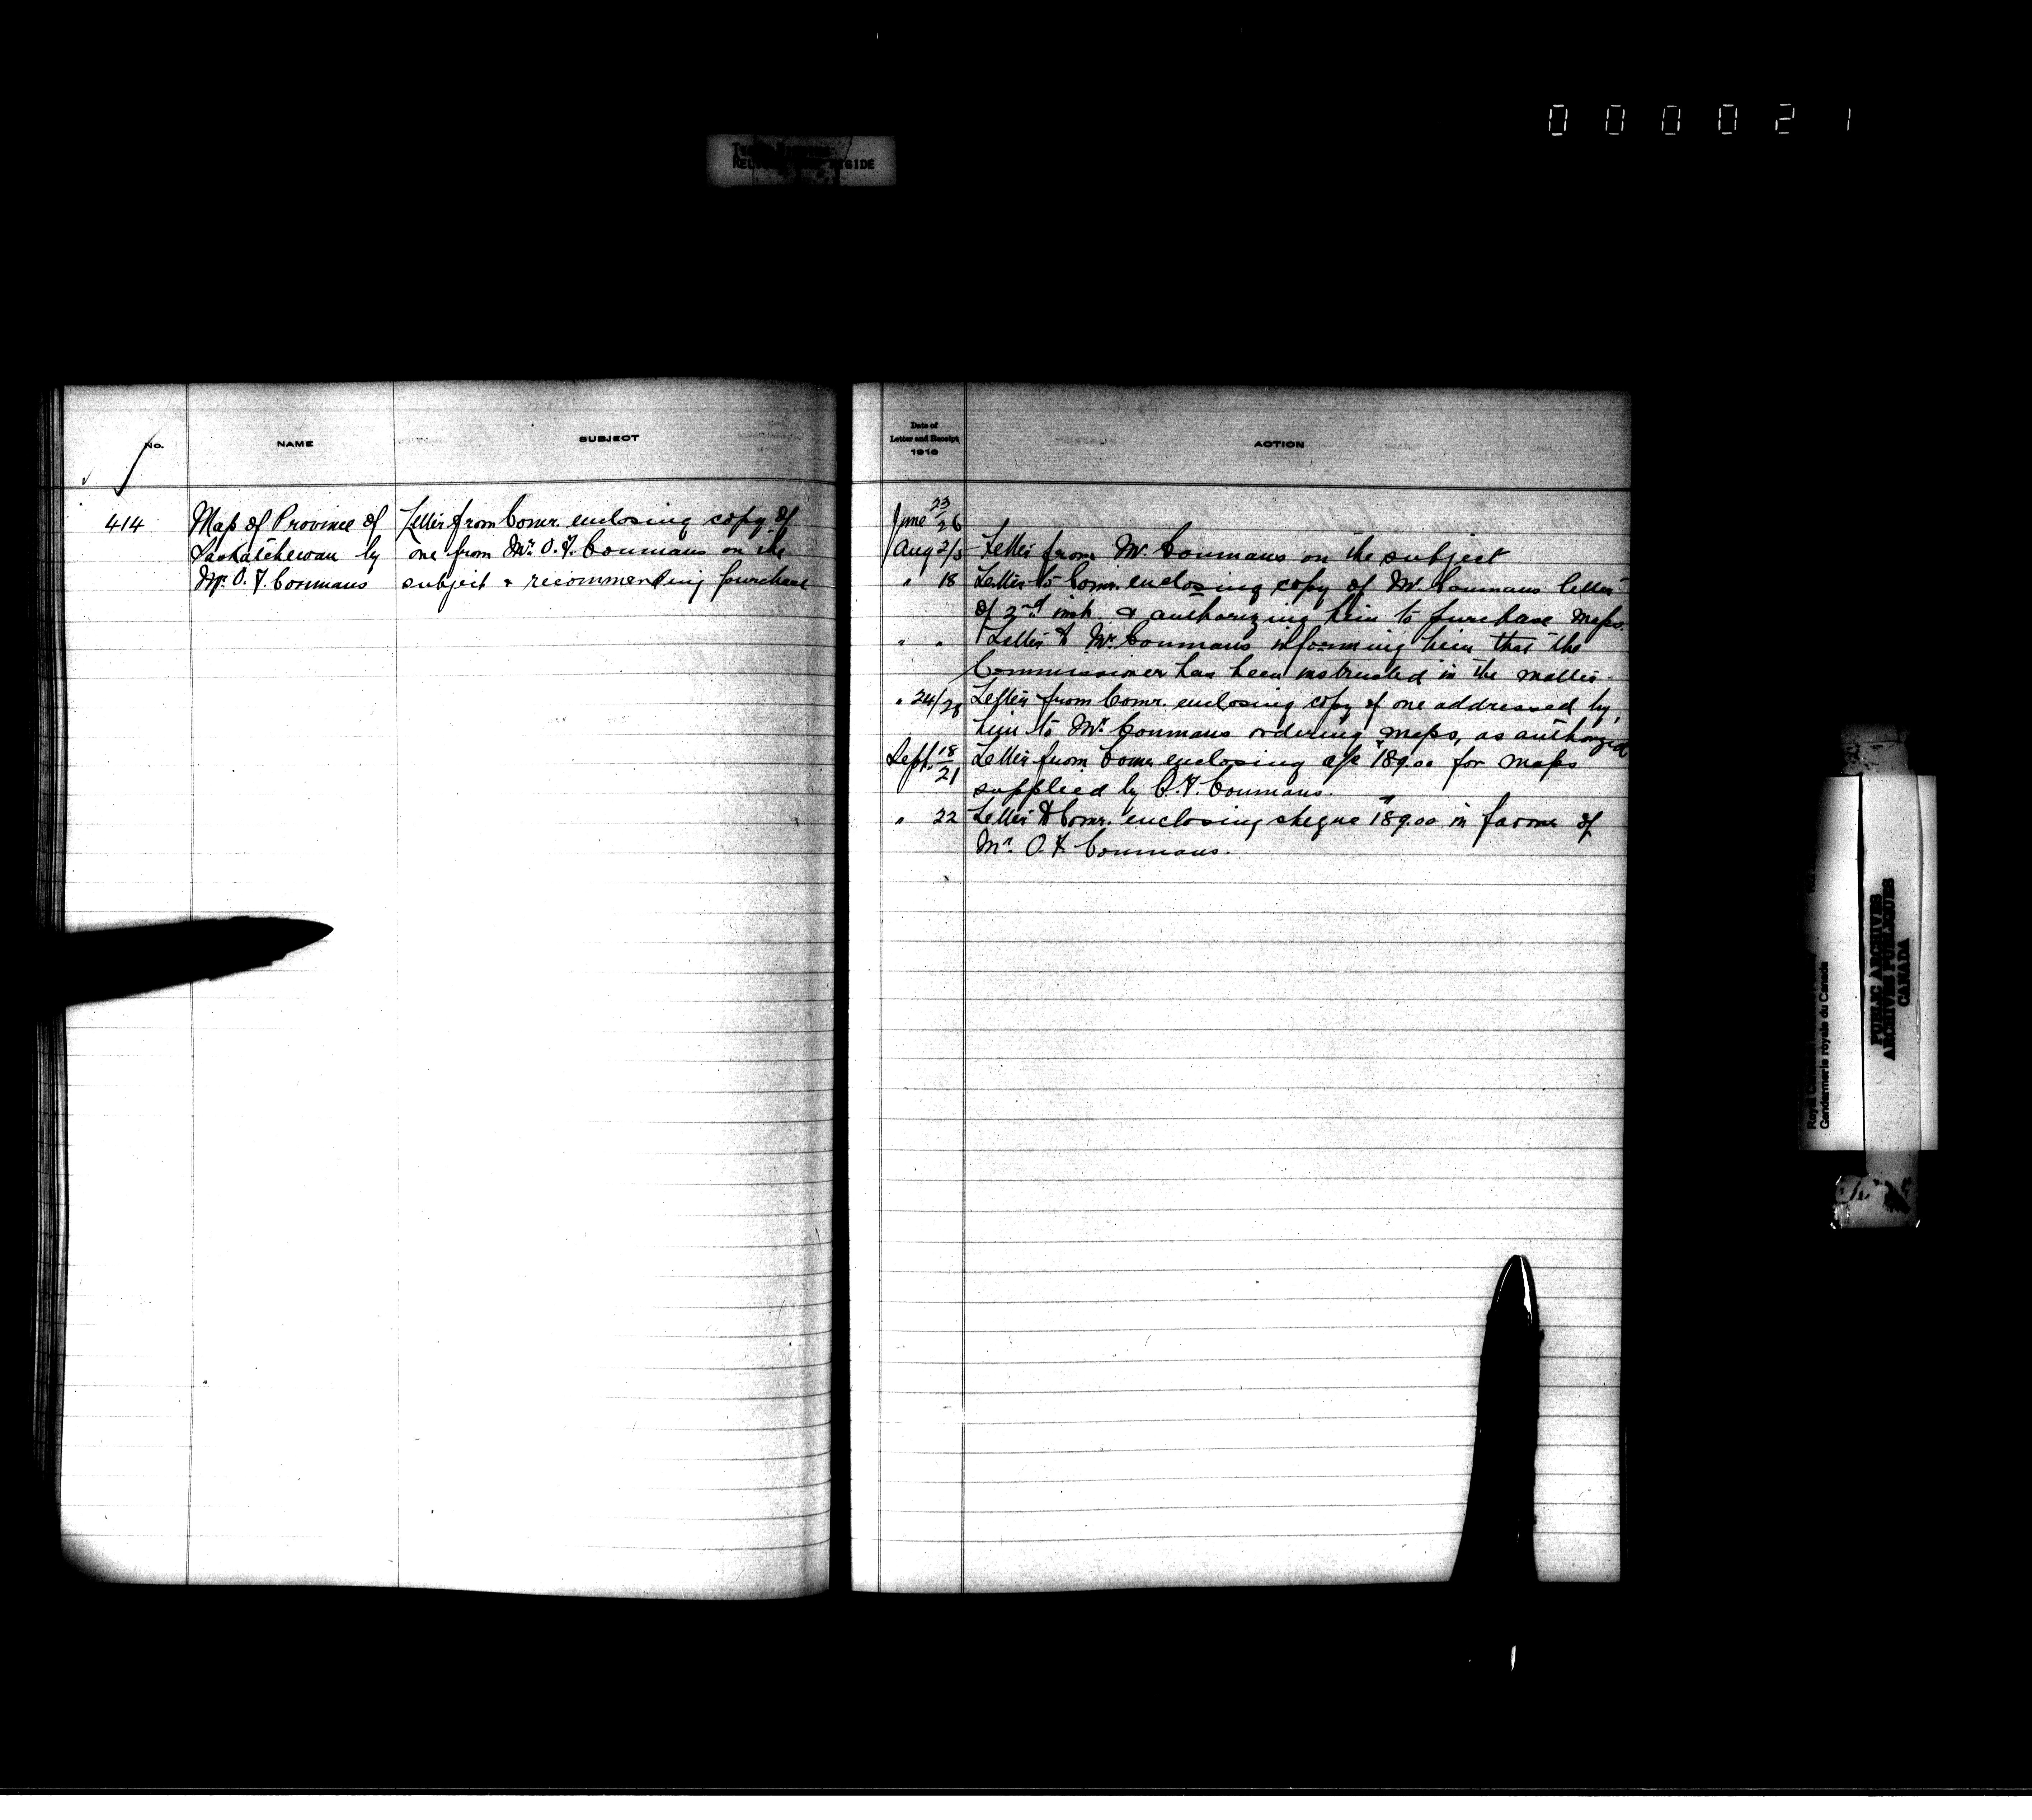 000021
No.
NAME
SUBJECT
414
Map of Province of
Saskatchewan by
Mr. O. F. Coumans
Letter from Comr. enclosing copy of
one from Mr. O. F. Coumans on the
subject & recommending purchase
Date of
Letter and Receipt,
1916
ACTION
June 23/26
Aug 2/5 Letter from Mr. Coumans on the subject
" 18 Letter to Comr. enclosing copy of Mr. Coumans letter
of 2nd inst. & authorizing him to purchase maps.
" " Letter to Mr. Coumans informing him that the
Commissioner has been instructed in the matter
" 24/28 Letter from Comr. enclosing copy of one addressed by
him to Mr. Coumans ordering maps, as authorized
Sept. 18/21 Letter from Comr. enclosing a/c $189.00 for maps
supplied by O. F. Coumans.
" 22 Letter to Comr. enclosing cheque $189.00 in favour of
Mr. O. F. Coumans.
Gendarmerie royale du Canada
PUBLIC ARCHIVES
ARCHIVES PUBLIQUES
CANADA